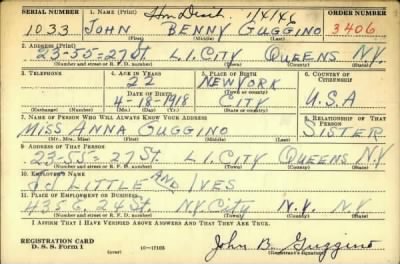 SERIAL NUMBER 1. NAME (Print) Hon Disch. 1/4/46 ORDER NUMBER
1033 JOHN BENNY GUGGINO 3406
(First) (Middle) (Last)
2. ADDRESS (Print)
23-55=27 St. L.I. CITY QUEENS N.Y.
(Number and street or R. F. D. number) (Town) (County) (State)
3. TELEPHONE 4. AGE IN YEARS 5. PLACE OF BIRTH 6. COUNTRY OF CITIZENSHIP
22 NEW YORK
(Town or county)
DATE OF BIRTH
4-18-1918 CITY U.S.A
(Exchange) (Number) (Mo.) (Day) (Yr.) (State or country)
7. NAME OF PERSON WHO WILL ALWAYS KNOW YOUR ADDRESS 8. RELATIONSHIP OF THAT PERSON
MISS ANNA GUGGINO SISTER
(Mr., Mrs., Miss) (First) (Middle) (Last)
9. ADDRESS OF THAT PERSON
23-55=27 St. L.I. CITY QUEENS N.Y
(Number and street or R. F. D. number) (Town) (County) (State)
10. EMPLOYER'S NAME
J J LITTLE AND IVES
11. PLACE OF EMPLOYMENT OR BUSINESS
435 E. 24 St. N.Y. City N.Y. N.Y
(Number and street or R. F. D. number) (Town) (County) (State)
I AFFIRM THAT I HAVE VERIFIED ABOVE ANSWERS AND THAT THEY ARE TRUE.
REGISTRATION CARD
D. S. S. Form 1 16—17105 John B. Guggino
(Registrant's signature)